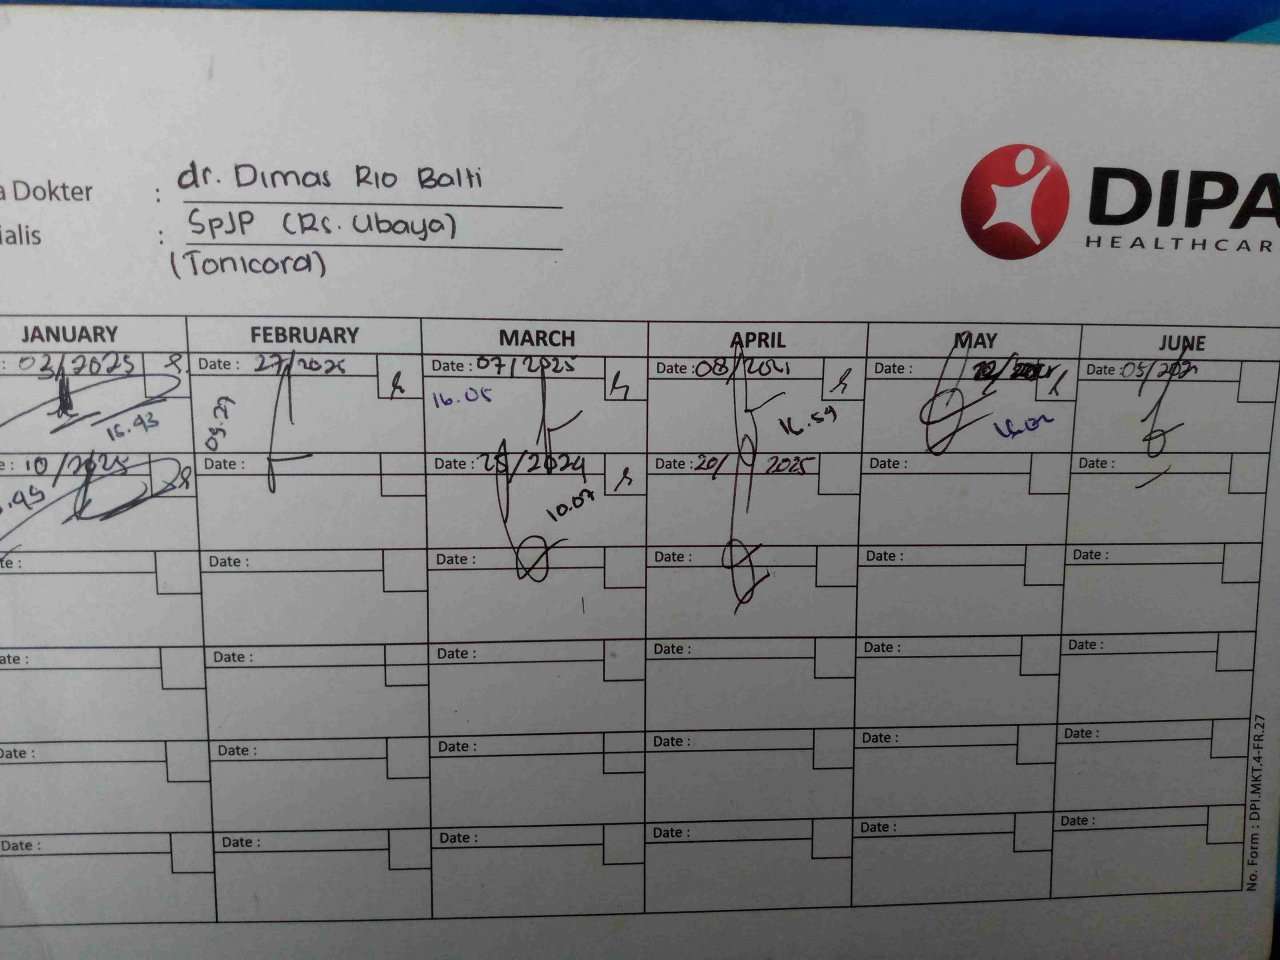 a Dokter : dr. Dimas Rio Balti
ialis : SpJP (Rs. Ubaya)
(Tonicard)
DIPA
HEALTHCAR
JANUARY FEBRUARY MARCH APRIL MAY JUNE
: 03/2025 Date : 27/2025 Date : 07/2025 Date : 08/2021 Date : Date : 05/202
16.43 09.27 16.05 16.59
e : 10/2025 Date : Date : 25/2024 Date : 20/ 2025 Date : Date :
.45 10.07
te : Date : Date : Date : Date : Date :
ate : Date : Date : Date : Date : Date :
Date : Date : Date : Date : Date : Date :
Date : Date : Date : Date : Date : Date :
No. Form : DPI.MKT.4-FR.27